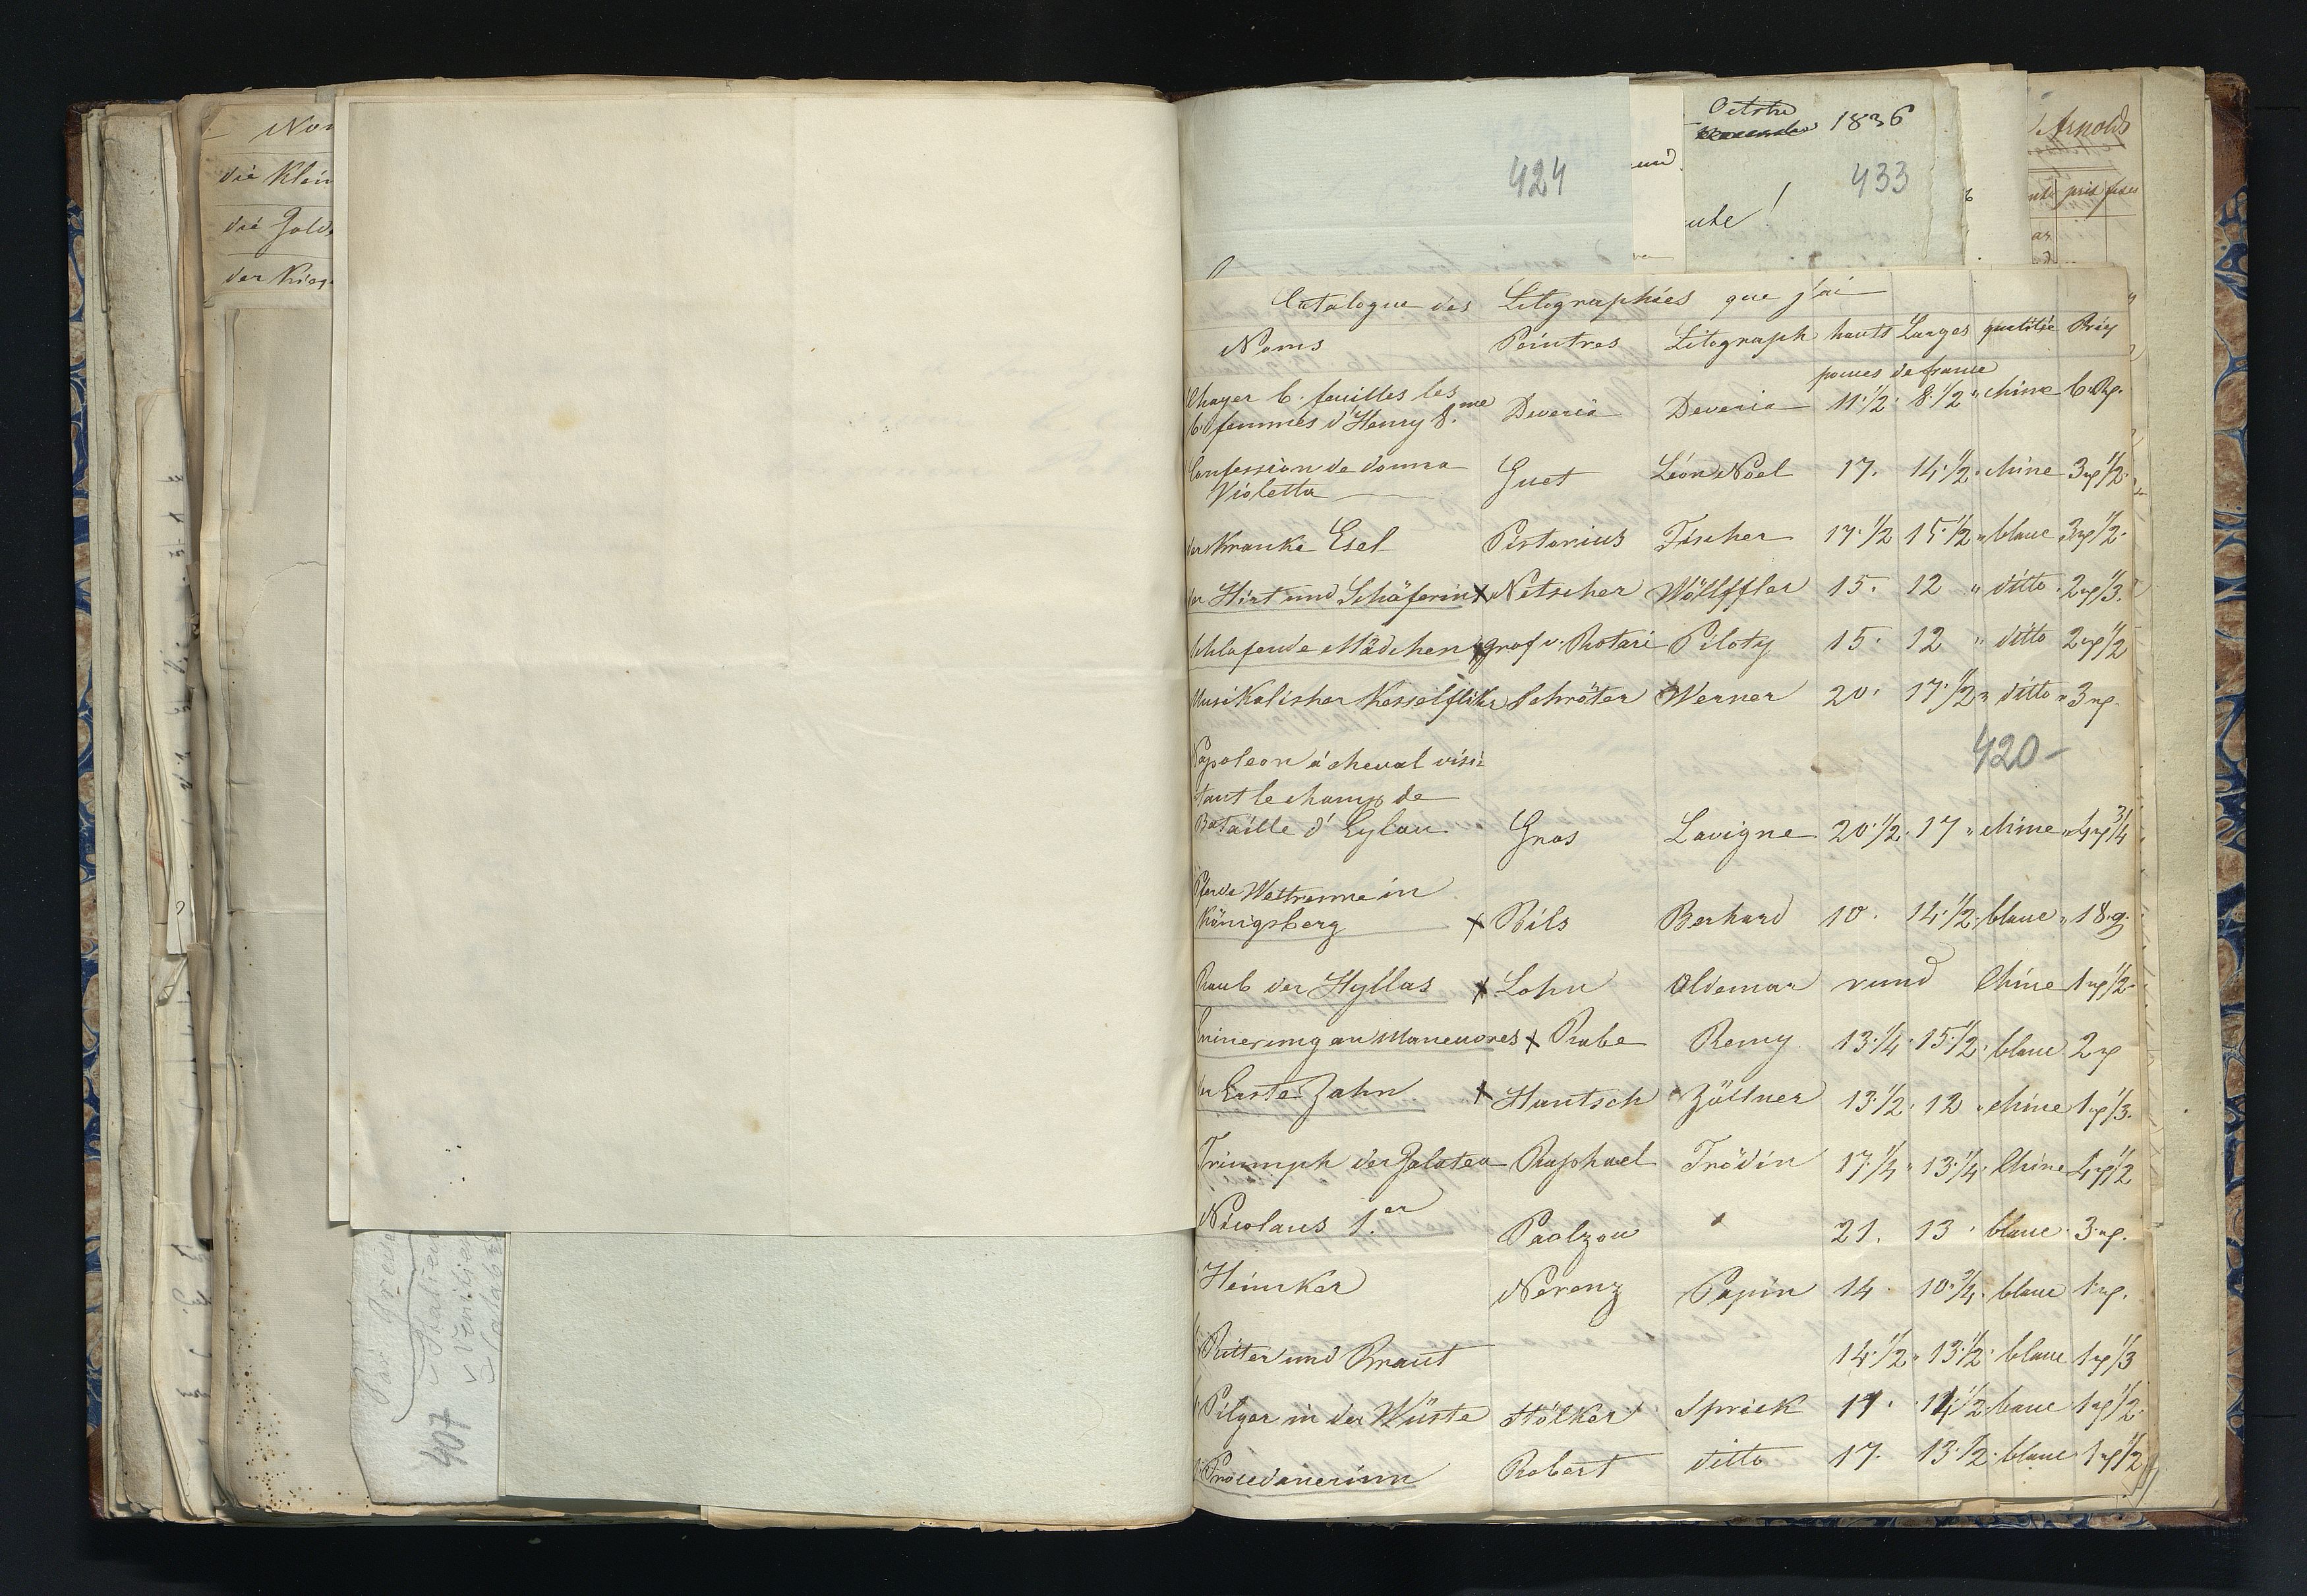 Nom
die Klein
die Gold
der Krieg
Par Greie
Italien
Venitie
407
424
Octobre 1836
433
ute!
Arnold
prix
Catalogue des Litographies que j'ai
Noms Peintres Litograph hauts Larges qualitée Prix
pouces de france
Cahayer 6. feuilles les
6. femmes d'Henry 8.me Deveria Deveria 11.1/2. 8.1/2 " chine 6. Rp.
Confession de donna
Violetta Guet Léon Noel 17. 14.1/2. chine 3 rp 1/2.
der Kranke Esel Pistorius Fischer 17.1/2 15.1/2 " blanc 3 rp 1/2.
der Hirt und Schäferin x Netscher Wölffler 15. 12 " ditto 2 rp 1/3.
Schlafende Mädchen x graf v. Rotari Piloty 15. 12 " ditto 2 rp 1/2
Musikalisher Kesselfliker Schröter Werner 20. 17.1/2 " ditto " 3 rp.
420-
Napoleon á cheval visi-
tant le champ de
Bataille d'Eylau Gros Lavigne 20.1/2. 17 " chine " 4 rp 3/4
Pferde Wettrenne in
Königsberg x Bils Berhard 10. 14.1/2. blanc " 18. g.
Raub der Hyllas x Sohn Oldemar rund Chine 1 rp 1/2.
Erinerung an Maneuvres x Rabe Remy 13.1/4. 15.1/2. blanc. 2 rp
der Erste Zahn x Hantsch Zöllner 13.1/2. 12 " chine 1 rp 1/3.
Triumph der Galatea Raphael Trödin 17.1/4 " 13.1/4. Chine 4 rp 1/2
Nicolaus 1.er Paalzou " 21. 13. blanc. 3 rp.
Heimker Nerenz Papin 14. 10.3/4. blanc 1 rp.
Ritter und Braut 14.1/2 " 13.1/2. blanc 1 rp 1/3
Pilger in der Wüste Stölker Sprick 17. 14.1/2 banc 1 rp 1/2.
Procedanerinn Robert ditto 17. 13.1/2. blanc 1 rp 1/2